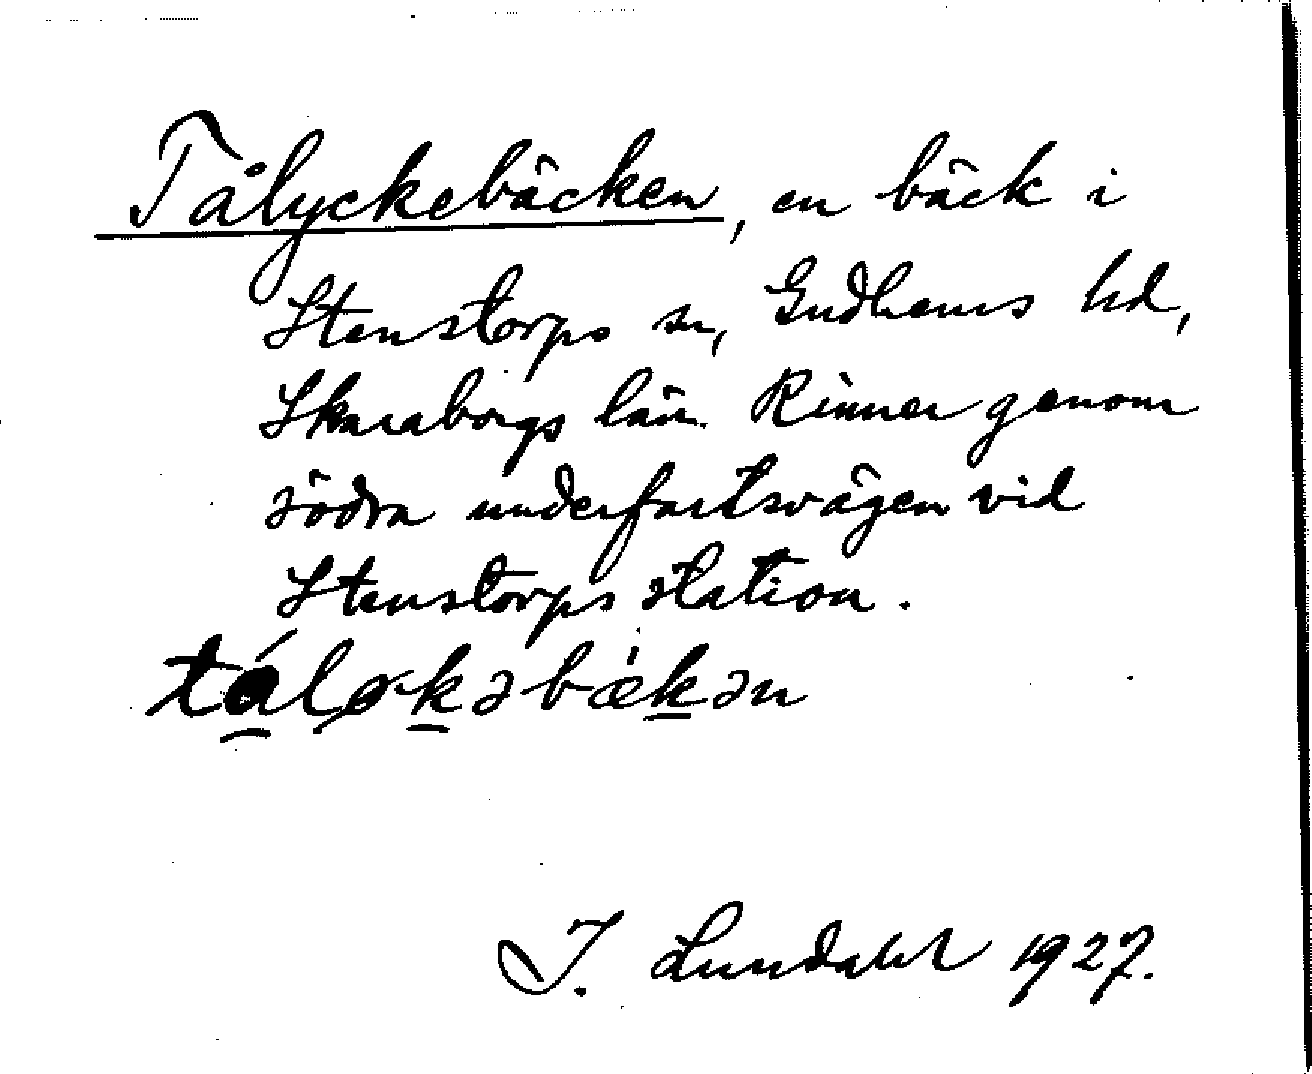 Tålyckebäcken, en bäck i
Stenstorps sn, Gudhems hd,
Skaraborgs län. Rinner genom
södra underfartsvägen vid
Stenstorps station.
táløkəbækən
I. Lundahl 1927.